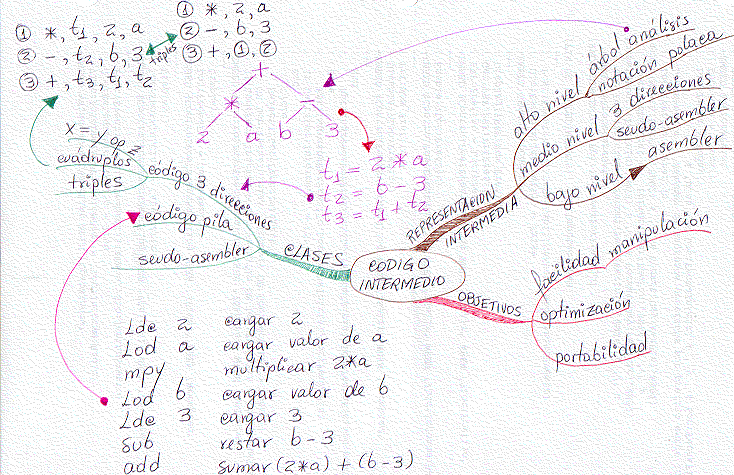 ① *, t₁, 2, a
② -, t₂, b, 3
③ +, t₃, t₁, t₂
triples
① *, 2, a
② -, b, 3
③ +, ①, ②
+
* -
2 a b 3
t₁ = 2 * a
t₂ = b - 3
t₃ = t₁ + t₂
x = y op z
cuádruplos
triples
código 3 direcciones
código pila
seudo-asembler
CLASES
CODIGO
INTERMEDIO
REPRESENTACION
INTERMEDIA
alto nivel
árbol análisis
notación polaca
medio nivel
3 direcciones
seudo-asembler
bajo nivel
asembler
OBJETIVOS
facilidad manipulación
optimización
portabilidad
Ldc 2 cargar 2
Lod a cargar valor de a
mpy multiplicar 2*a
Lod b cargar valor de b
Ldc 3 cargar 3
sub restar b-3
add sumar (2*a) + (b-3)